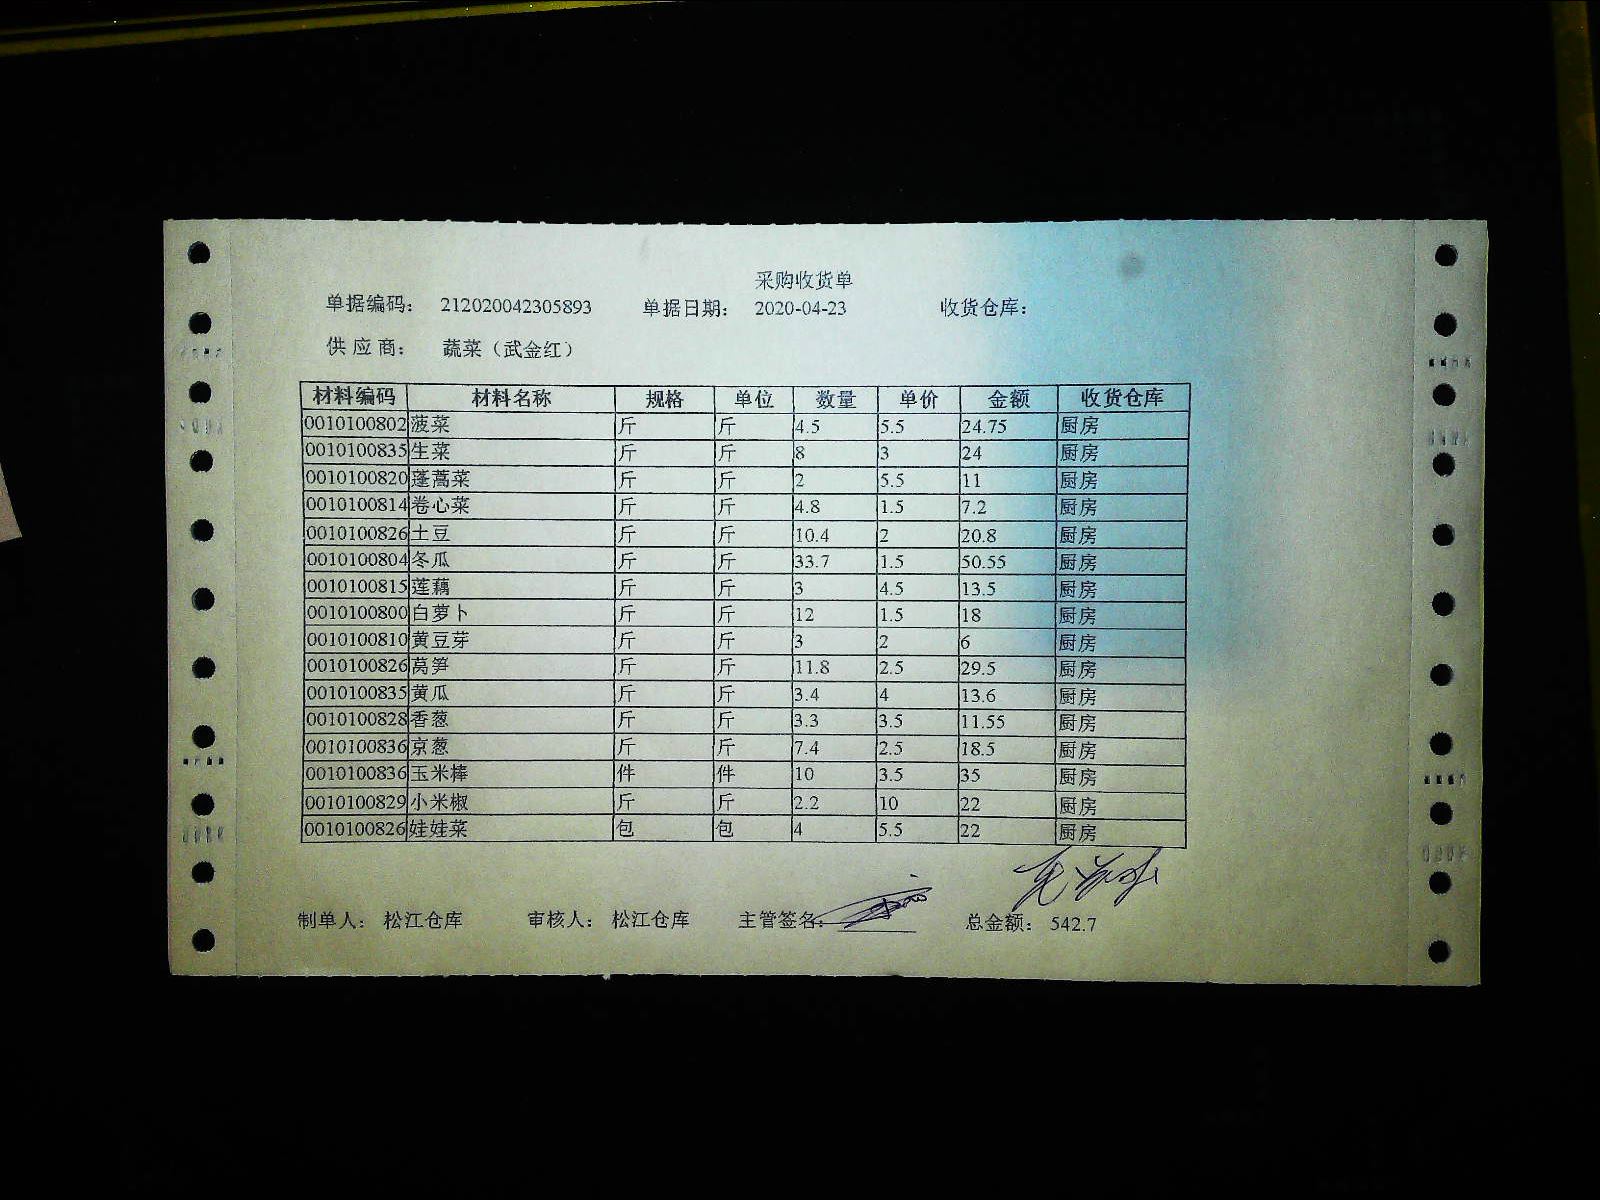 采购收货单
单据编码： 212020042305893 单据日期： 2020-04-23 收货仓库：
供应商： 蔬菜（武金红）
材料编码 材料名称 规格 单位 数量 单价 金额 收货仓库
0010100802 菠菜 斤 斤 4.5 5.5 24.75 厨房
0010100835 生菜 斤 斤 8 3 24 厨房
0010100820 蓬蒿菜 斤 斤 2 5.5 11 厨房
0010100814 卷心菜 斤 斤 4.8 1.5 7.2 厨房
0010100826 土豆 斤 斤 10.4 2 20.8 厨房
0010100804 冬瓜 斤 斤 33.7 1.5 50.55 厨房
0010100815 莲藕 斤 斤 3 4.5 13.5 厨房
0010100800 白萝卜 斤 斤 12 1.5 18 厨房
0010100810 黄豆芽 斤 斤 3 2 6 厨房
0010100826 莴笋 斤 斤 11.8 2.5 29.5 厨房
0010100835 黄瓜 斤 斤 3.4 4 13.6 厨房
0010100828 香葱 斤 斤 3.3 3.5 11.55 厨房
0010100836 京葱 斤 斤 7.4 2.5 18.5 厨房
0010100836 玉米棒 件 件 10 3.5 35 厨房
0010100829 小米椒 斤 斤 2.2 10 22 厨房
0010100826 娃娃菜 包 包 4 5.5 22 厨房
制单人： 松江仓库 审核人： 松江仓库 主管签名： 总金额： 542.7